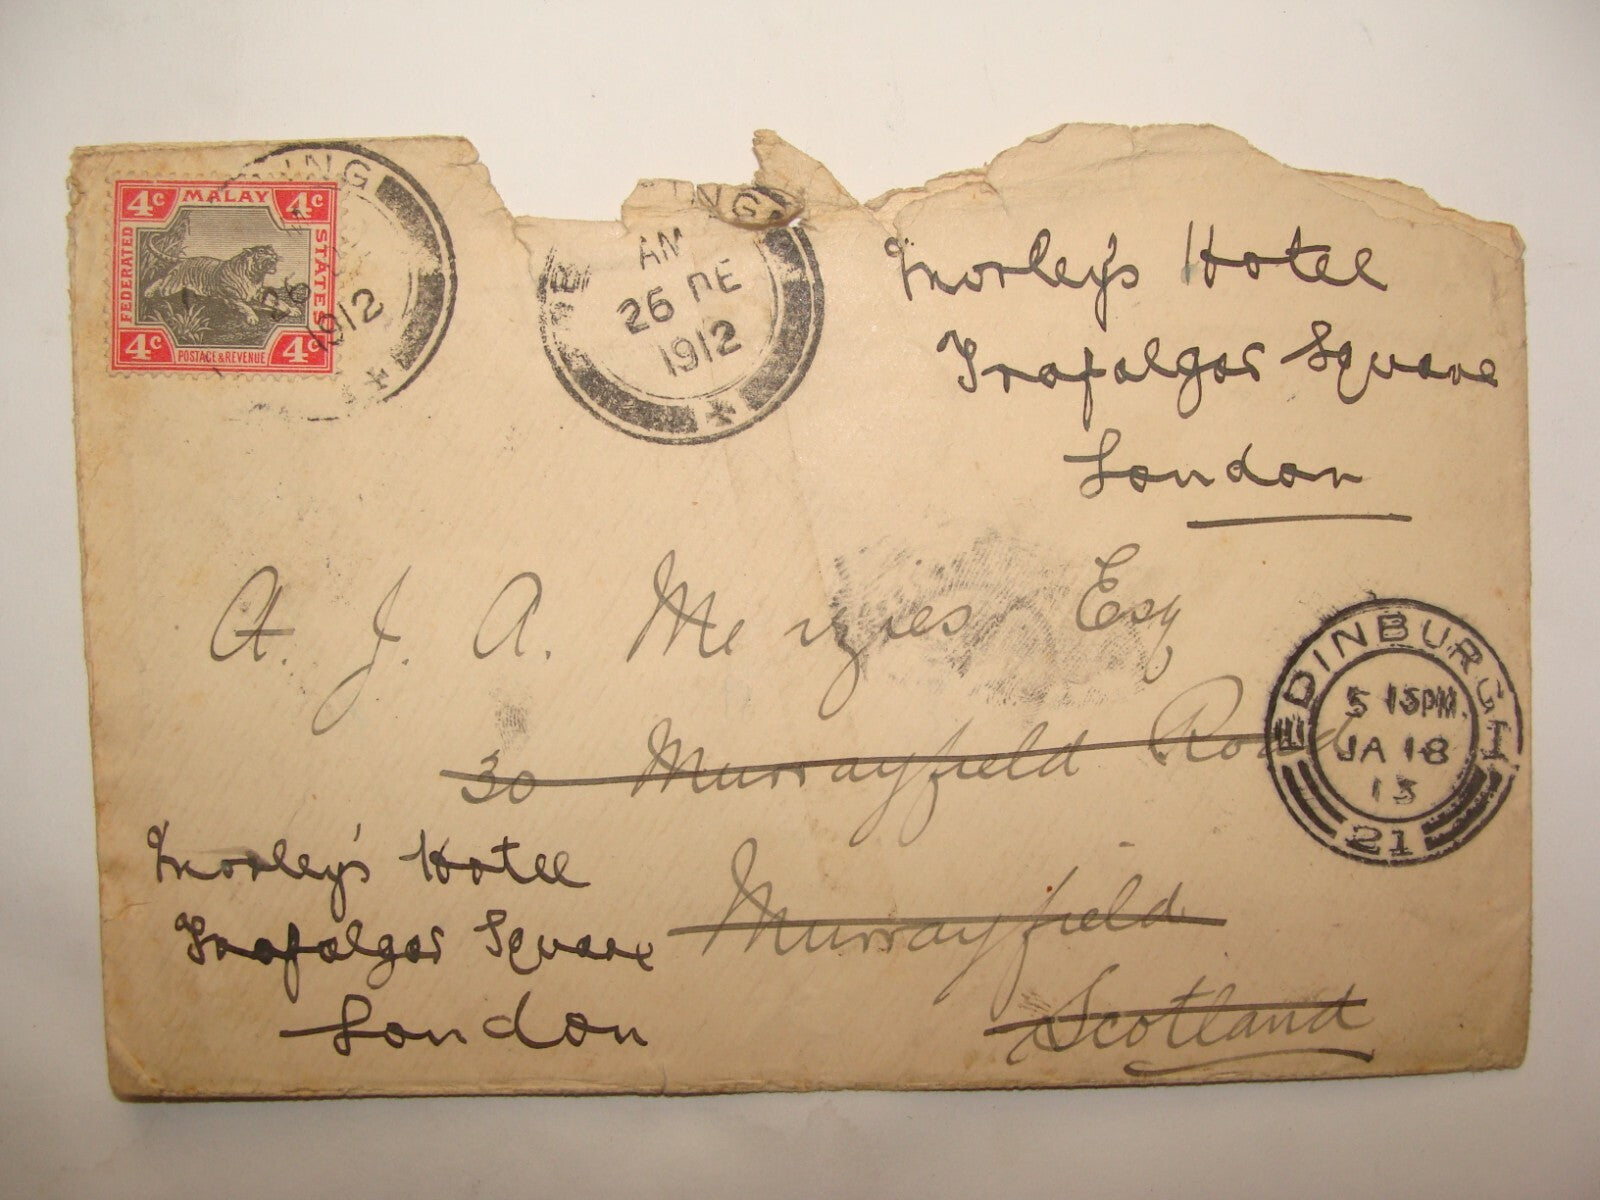 4c MALAY 4c
FEDERATED
STATES
4c POSTAGE & REVENUE 4c
ING
26
1912
NG
AM
26 DE
1912
Morley's Hotel
Trafalgar Square
London
A. J. A. Menzies Esq
30 Murrayfield Road
Murrayfield
Scotland
EDINBURGH
5 15PM
JA 18
13
21
Morley's Hotel
Trafalgar Square
London